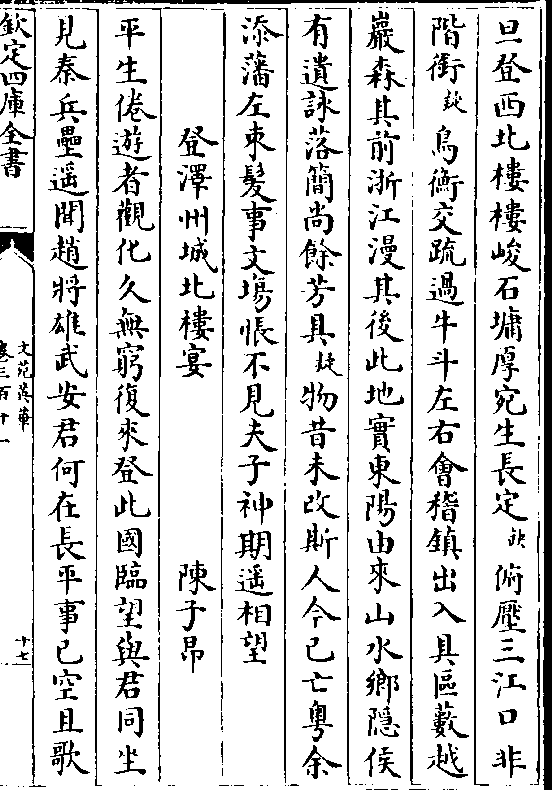 旦登西北樓樓峻石墉厚宛生長定缺俯壓三江口非
階銜缺鳥衡交疏過牛斗左右會稽鎮出入具區藪越
巖森其前浙江漫其後此地實東陽由來山水鄉隱侯
有遺詠落簡尚餘芳具缺物昔未改斯人今已亡粵余
添藩左束髮事文塲悵不見夫子神期遥相望
登澤州城北樓宴 陳子昂
平生倦遊者觀化久無窮復來登此國臨望與君同坐
見秦兵壘遥聞趙將雄武安君何在長平事已空且歌
欽定四庫全書
文苑英華
卷三百十一
十七